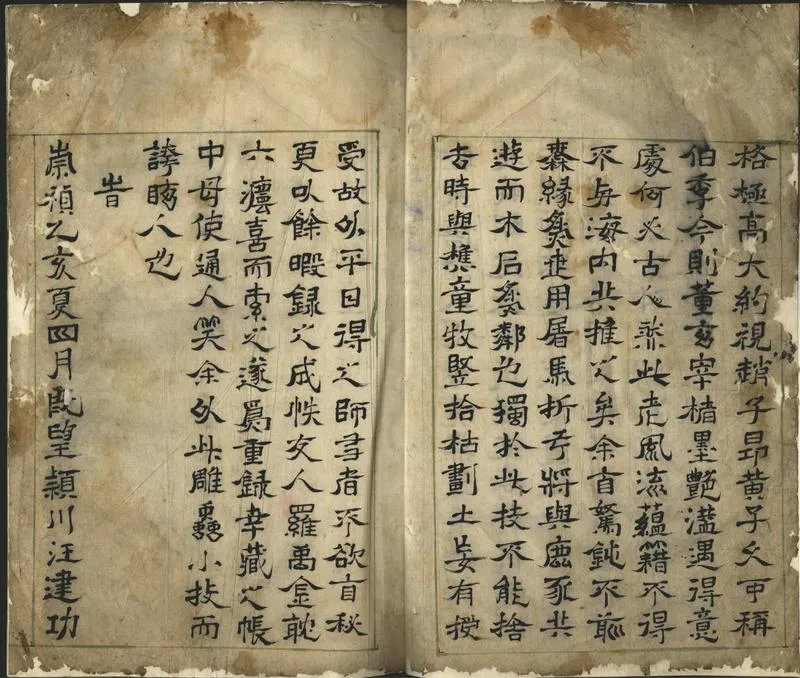 格極高大約視趙子昂黃子久可稱
伯季今則董玄宰楮墨艷濫遇得意
處何必古人此老風流蘊籍不得
不与海内共推之矣余自駑鈍不敢
緣為世用屠馬折弓將與鹿豕共
遊而木石為鄰也獨於此技不能捨
去時與樵童牧豎拾枯劃土妄有授
受故以平日得之師友者不欲自秘
更以餘暇録之成帙友人羅萬金耽
六灋喜而索之遂為重録幸藏之帳
中毋使通人笑余以此雕蟲小技而
誇眩人也
旹
崇禎乙亥夏四月既望潁川汪建功